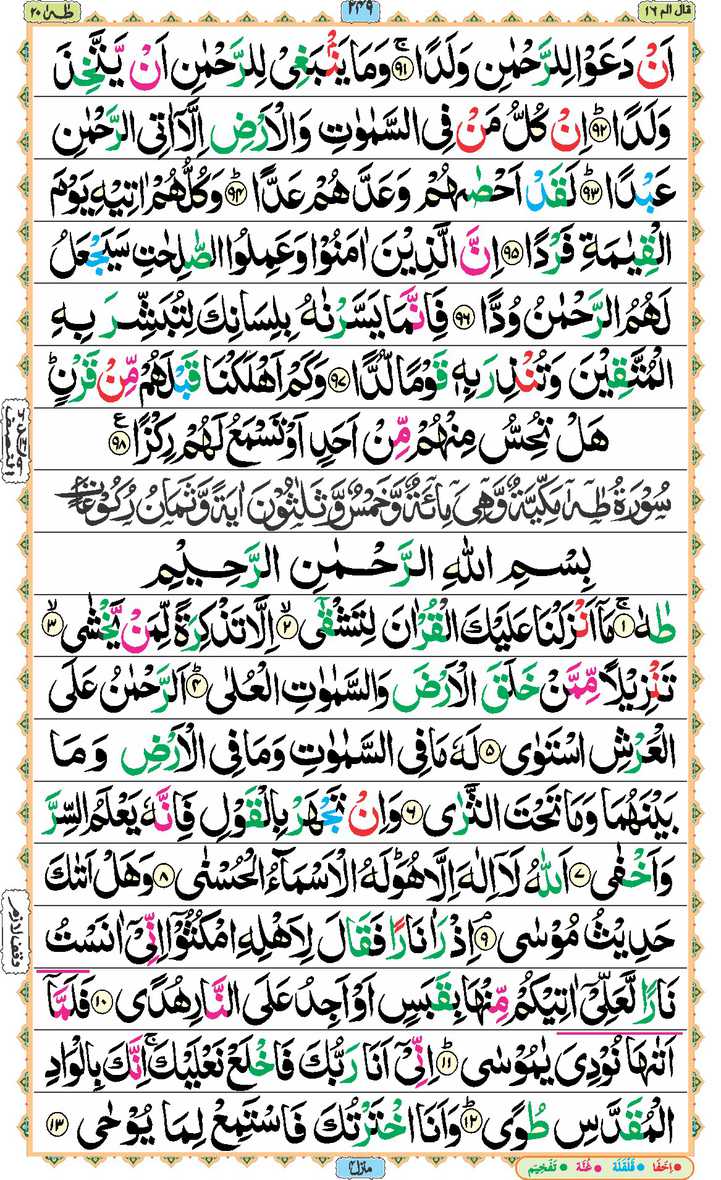 قال الم ١٦
٢٤٩
طٰهٰ ٢٠
اَنْ دَعَوْا لِلرَّحْمٰنِ وَلَدًا ۚ‏﴿۹۱﴾ وَمَا يَنْۢبَغِىْ لِلرَّحْمٰنِ اَنْ يَّتَّخِذَ
وَلَدًا ؕ‏﴿۹۲﴾ اِنْ كُلُّ مَنْ فِى السَّمٰوٰتِ وَالْاَرْضِ اِلَّاۤ اٰتِى الرَّحْمٰنِ
عَبْدًا ؕ‏﴿۹۳﴾ لَقَدْ اَحْصٰٮهُمْ وَعَدَّهُمْ عَدًّا ؕ‏﴿۹۴﴾ وَكُلُّهُمْ اٰتِيْهِ يَوْمَ
الْقِيٰمَةِ فَرْدًا‏﴿۹۵﴾ اِنَّ الَّذِيْنَ اٰمَنُوْا وَعَمِلُوا الصّٰلِحٰتِ سَيَجْعَلُ
لَهُمُ الرَّحْمٰنُ وُدًّا‏﴿۹۶﴾ فَاِنَّمَا يَسَّرْنٰهُ بِلِسَانِكَ لِتُبَشِّرَ بِهِ
الْمُتَّقِيْنَ وَتُنْذِرَ بِهٖ قَوْمًا لُّدًّا‏﴿۹۷﴾ وَكَمْ اَهْلَكْنَا قَبْلَهُمْ مِّنْ قَرْنٍؕ
هَلْ تُحِسُّ مِنْهُمْ مِّنْ اَحَدٍ اَوْ تَسْمَعُ لَهُمْ رِكْزًا‏﴿۹۸﴾ ع
سُوْرَةُ طٰهٰ مَكِّيَّةٌ وَّهِىَ مِائَةٌ وَّخَمْسٌ وَّثَلٰثُوْنَ اٰيَةً وَّثَمَانُ رُكُوْعَاتٍ
بِسْمِ اللهِ الرَّحْمٰنِ الرَّحِيْمِ
طٰهٰ ۚ‏﴿۱﴾ مَاۤ اَنْزَلْنَا عَلَيْكَ الْقُرْاٰنَ لِتَشْقٰٓى ۙ‏﴿۲﴾ اِلَّا تَذْكِرَةً لِّمَنْ يَّخْشٰى ۙ‏﴿۳﴾
تَنْزِيْلًا مِّمَّنْ خَلَقَ الْاَرْضَ وَالسَّمٰوٰتِ الْعُلٰى ؕ‏﴿۴﴾ اَلرَّحْمٰنُ عَلَى
الْعَرْشِ اسْتَوٰى‏﴿۵﴾ لَهٗ مَا فِى السَّمٰوٰتِ وَمَا فِى الْاَرْضِ وَمَا
بَيْنَهُمَا وَمَا تَحْتَ الثَّرٰى‏﴿۶﴾ وَاِنْ تَجْهَرْ بِالْقَوْلِ فَاِنَّهٗ يَعْلَمُ السِّرَّ
وَاَخْفٰى‏﴿۷﴾ اَللهُ لَاۤ اِلٰهَ اِلَّا هُوَؕ لَهُ الْاَسْمَآءُ الْحُسْنٰى‏﴿۸﴾ وَهَلْ اَتٰٮكَ
حَدِيْثُ مُوْسٰى ۘ‏﴿۹﴾ اِذْ رَاٰ نَارًا فَقَالَ لِاَهْلِهِ امْكُثُوْۤا اِنِّىْۤ اٰنَسْتُ
نَارًا لَّعَلِّىْۤ اٰتِيْكُمْ مِّنْهَا بِقَبَسٍ اَوْ اَجِدُ عَلَى النَّارِ هُدًى‏﴿۱۰﴾ فَلَمَّاۤ
اَتٰٮهَا نُوْدِىَ يٰمُوْسٰى ؕ‏﴿۱۱﴾ اِنِّىْۤ اَنَا رَبُّكَ فَاخْلَعْ نَعْلَيْكَ‌ۚ اِنَّكَ بِالْوَادِ
الْمُقَدَّسِ طُوًى ؕ‏﴿۱۲﴾ وَاَنَا اخْتَرْتُكَ فَاسْتَمِعْ لِمَا يُوْحٰى‏﴿۱۳﴾
منزل ۴
اِخْفَا قَلْقَلَهْ غُنَّهْ تَفْخِيْم